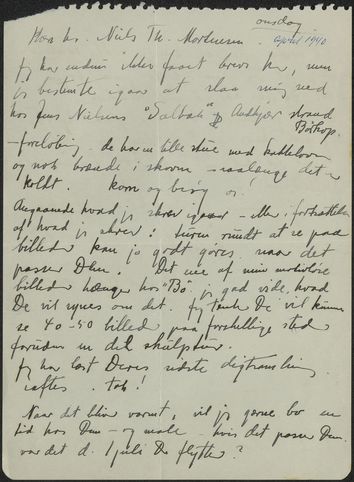 onsdag
april 1940
Kære hr. Niels Th. Mortensen.
jeg har endnu ikke faaet brev her, men
jeg bestemte igaar at slaa mig ned
hos Jens Nielsens "Salbak" Andkjær strand
Børkop.
– foreløbig – de har en lille stue med kakkelovn
og nok brænde i skoven – saalænge det er
koldt. kom og besøg os!
Angaaende hvad jeg skrev igaar – eller i fortsættelse
af hvad jeg skrev: turen rundt at se paa
billeder kan jo godt gøres naar det
passer Dem. Det ene af mine
billeder hænger hos "Bo" jeg gad vide hvad
De vil synes om det. jeg tænker De vil kunne
se 40–50 billeder paa forskellige steder
foruden en del skulptur.
Jeg har læst Deres sidste digtsamling
iaftes. tak!
Naar det bliver varmt, vil jeg gerne bo en
tid hos Dem – og male – hvis det passer Dem.
var det d. 1 juli De flytter?